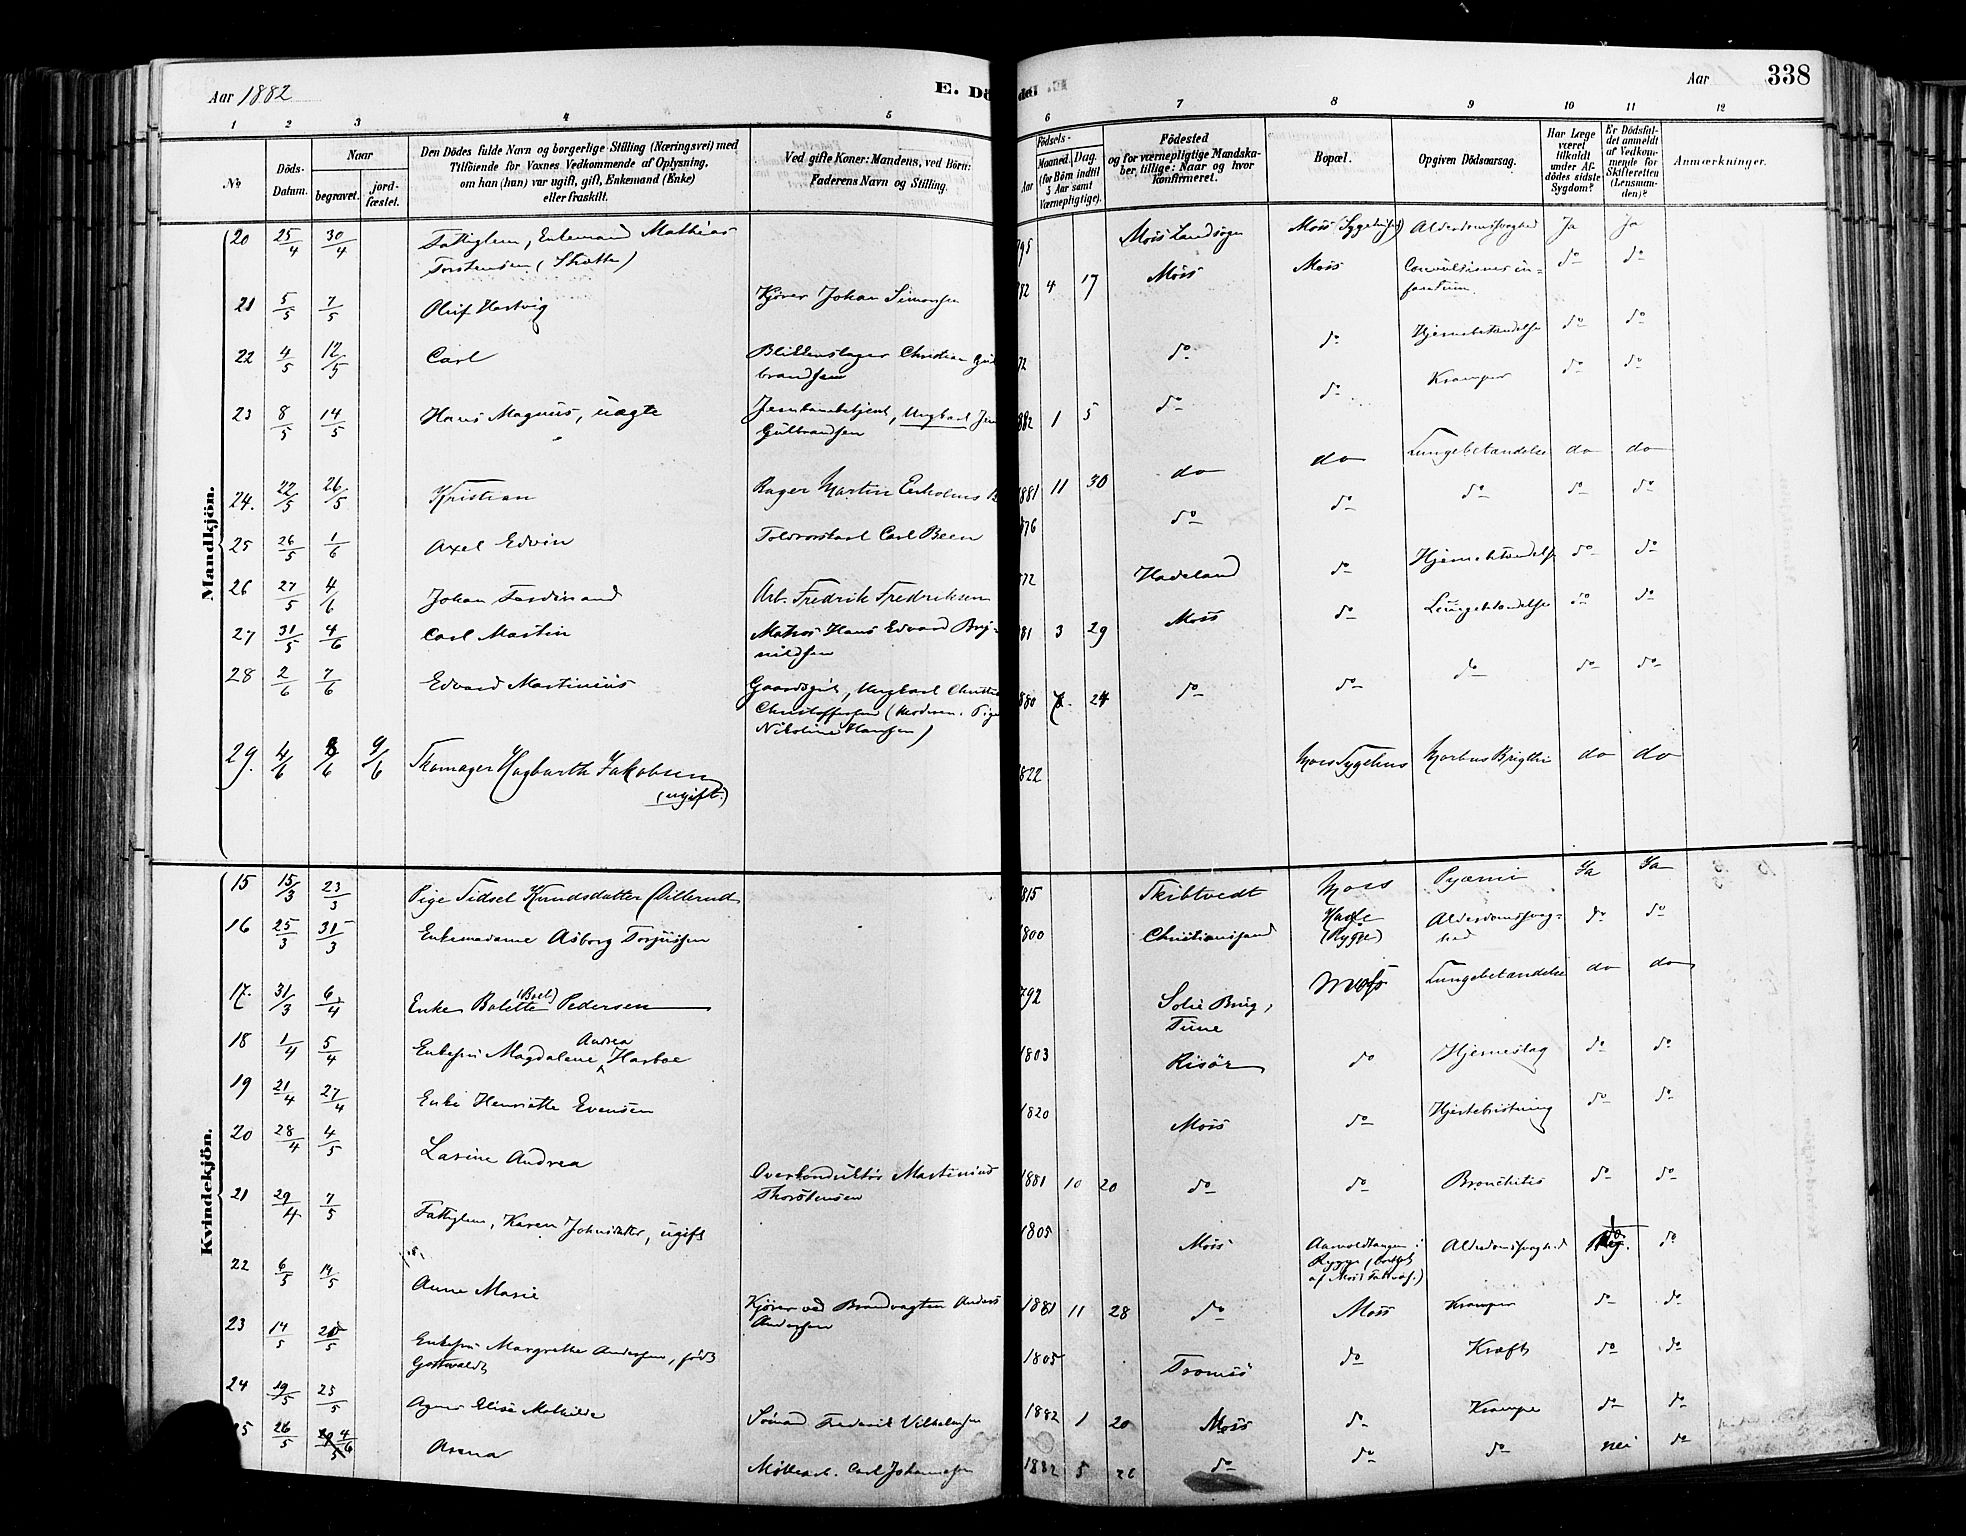 Aar 1882
E. Dö
1 2 3 4 5
No
Döds-
Datum.
Naar
begravet.
jord-
fæstet.
Den Dödes fulde Navn og borgerlige Stilling (Næringsvei) med
Tilföiende for Voxnes Vedkommende af Oplysning,
om han (hun) var ugift, gift, Enkemand (Enke)
eller fraskilt.
Ved gifte Koner: Mandens, ved Börn:
Faderens Navn og Stilling.
Aar 338
6 7 8 9 10 11 12
Födsels-
Aar
Maaned. Dag.
(for Börn indtil
5 Aar samt
Værnepligtige).
Födested
og for værnepligtige Mandska-
ber, tillige: Naar og hvor
konfirmeret.
Bopæl.
Opgiven Dödsaarsag.
Har Læge
været
tilkaldt
under Af-
dödes sidste
Sygdom?
Er Dödsfal-
det anmeldt
af Vedkom-
mende for
Skifteretten
(Lensman-
den)?
Anmærkninger.
Mandkjön.
20 25/4 30/4 Fattiglem, Enkemand Mathias 795 Moss Landsogn Moss (Sygehus) Alderdomssvaghed Ja Ja
Torstensen (Skatte)
21 5/5 7/5 Oluf Hartvig Kjører Johan Simonsen 82 4 17 Moss Moss Convulsiones in- do do
fantum
22 4/5 12/5 Carl Blikkenslager Christian Gul 72 do do Hjernebetændelse do do
brandsen
23 8/5 14/5 Hans Magnus, uægte Jernbanebetjent, Ungkarl 882 1 5 do do Kramper do do
Gulbrandsen
24. 22/5 26/5 Kristian Bager Martin Eckholms 1881 11 30 do do Lungebetændelse do do
25 26/5 1/6 Axel Edvin Toldrorskarl Carl Been 876 do do do do do
26 27/5 4/6 Johan Ferdinand Arb. Fredrik Fredriksen 872 Hadeland do Hjernebetændelse do do
27 31/5 4/6 Carl Martin Matros Hans Edvard Bry- 81 3 29 Moss do Lungebetændelse do do
nildsen
28 2/6 7/6 Edvard Martinius Gaardsgut, Ungkarl Christian 880 24 do do do do do
Christoffersen (Moderen: Pige
Nikoline Hansen)
29. 4/6 8/6 9/6 Skomager Hagbarth Jakobsen 1822 Moss Sygehus Morbus Brigthi do do
(ugift.)
Kvindekjön.
15 15/3 23/3 Pige Sidsel Knudsdatter (Dillerud 1815 Skibtvedt Moss Pyæmi Ja Ja
16 25/3 31/3 Enkemadame Asborg Torjussen 1800 Christianssand (Rygge) Alderdomssvag- do do
hed
17. 31/3 6/4 Enke Bolette (Boel) Pedersen 792 Solie Brug, Moss Lungebetændelse do do
Tune
18 1/4 5/4 Enkefru Magdalene Andrea Harboe 1803 Risör do Hjerneslag do do
19 21/4 27/4 Enke Henriette Evensen 1820 Moss do Hjertebristning do do
20 28/4 4/5 Lasine Andrea Overkonduktør Martinius 1881 10 20 do do Bronchitis do do
Thorstensen
21 29/4 7/5 Fattiglem, Karen Johnsdatter, ugift 1805 Moss Aarvoldtangen i Alderdomssvaghed do do
Rygge (bortsat
af Moss Fattigv.)
22 6/5 14/5 Anne Marie Kjører ved Brandvagten Anders 1881 11 28 do Moss Kramper do do
Andersen
23 14/5 20/5 Enkefru Margrethe Andersen, født 1805 Tromsö do Kræft do do
Gottwaldt
24 19/5 25/5 Agnes Elise Mathilde Sömand Frederik Vilhelmsen 1882 1 20 Moss do Krampe do do
25 26/5 4/6 Arena Møllearb. Carl Johannesen 1882 5 26 do do do nei do